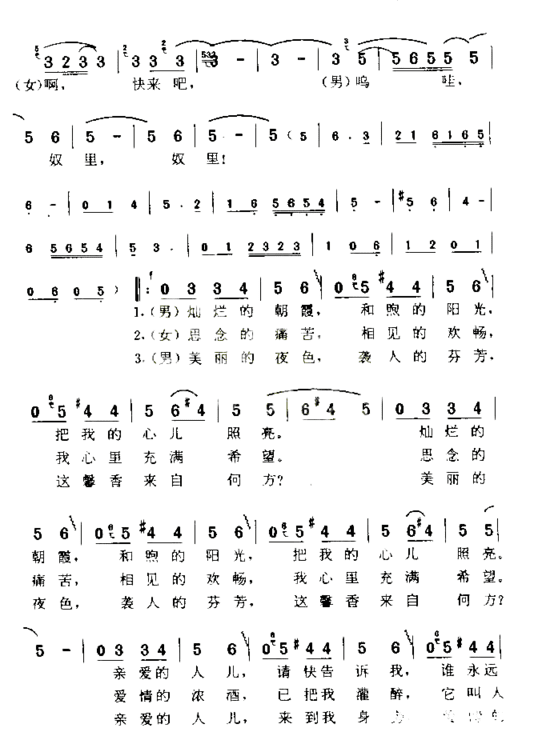 3 2 3 3 | 3 3 3 | 3 - | 3 - | 3 5 | 5 6 5 5 | 5
(女)啊, 快来吧, (男)呜 哇,
5 6 | 5 - | 5 - | 5 6 | 5 - | 5 (5 | 6 . 3 | 2 1 6 1 6 5 |
奴里, 奴里!
6 - | 0 1 4 | 5 . 2 | 1 6 5 6 5 4 | 5 - | 5 #5 | 4 - |
6 5 6 5 4 | 5 3 . | 0 1 2 3 2 3 | 1 0 6 | 1 2 0 1 |
0 6 0 5 ) ‖: 0 3 3 4 | 5 6 | 0 5 #4 4 | 5 6 |
1.(男)灿烂的朝霞, 和煦的阳光,
2.(女)思念的痛苦, 相见的欢畅,
3.(男)美丽的夜色, 袭人的芬芳,
0 5 #4 4 | 5 6 #4 | 5 5 | 5 6 #4 5 | 0 3 3 4 |
把我的心儿照亮。 灿烂的
我心里充满希望。 思念的
这馨香来自何方? 美丽的
5 6 | 0 5 #4 4 | 5 6 | 0 5 #4 4 | 5 6 #4 | 5 5 |
朝霞, 和煦的阳光, 把我的心儿照亮。
痛苦, 相见的欢畅, 我心里充满希望。
夜色, 袭人的芬芳, 这馨香来自何方?
5 - | 0 3 3 4 | 5 6 | 0 5 #4 4 | 5 6 | 0 5 #4 4 |
亲爱的人儿, 请快告诉我, 谁永远
爱情的浓酒, 已把我灌醉, 它叫人
亲爱的人儿, 来到我身